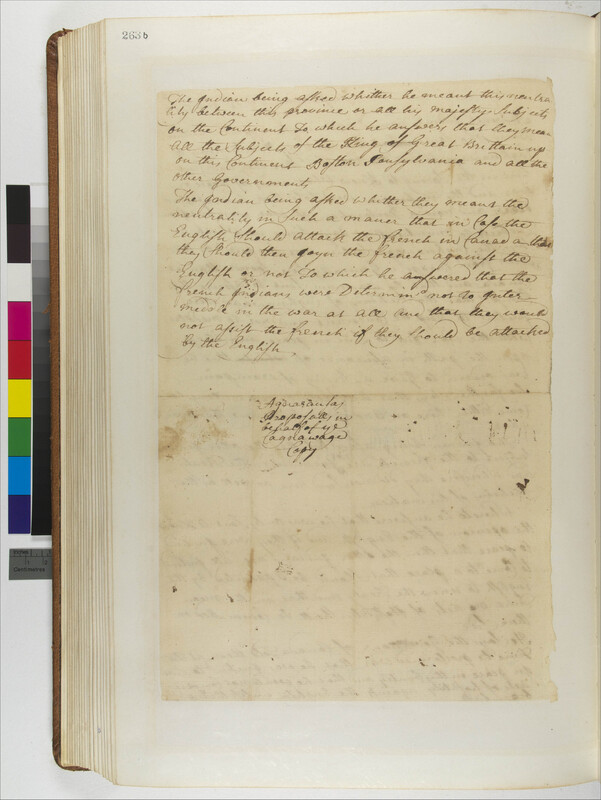 263b
The Indian being asked whether he meant this neutra
lity between this province or all his majestys Subjects
on the Continent To which he answers that they mean
all the Subjects of the King of Great Brittain up
on this Continent Boston Pansylvania and all the
other Governments
The Indian being asked whether they means the
neutrality in Such a maner that in Case the
English Should attack the french in Canada that
they Should then joyn the french against the
English or not To which he answered that the
french Indians were Determind not to Inter
medle in the war at all and that they would
not assist the french if they Should be attacked
by the English
Proposalls in
behalf of ye
Cagnawage
Copy
Centimetres